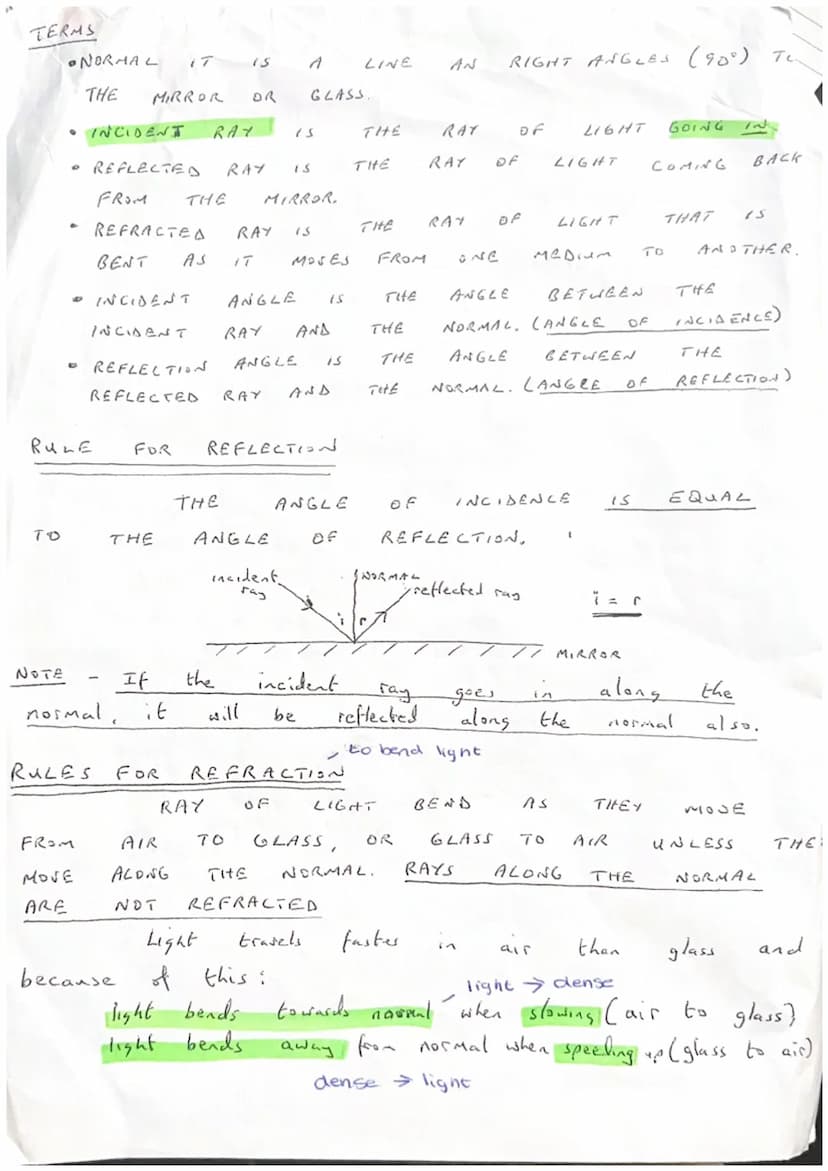 TERMS
• NORMAL IT IS A LINE AN RIGHT ANGLES (90°) TO
THE MIRROR OR GLASS.
• INCIDENT RAY IS THE RAY OF LIGHT GOING IN
• REFLECTED RAY IS THE RAY OF LIGHT COMING BACK
FROM THE MIRROR.
• REFRACTED RAY IS THE RAY OF LIGHT THAT IS
BENT AS IT MOVES FROM ONE MEDIUM TO ANOTHER.
• INCIDENT ANGLE IS THE ANGLE BETWEEN THE
INCIDENT RAY AND THE NORMAL. (ANGLE OF INCIDENCE)
• REFLECTION ANGLE IS THE ANGLE BETWEEN THE
REFLECTED RAY AND THE NORMAL. (ANGLE OF REFLECTION)
RULE FOR REFLECTION
THE ANGLE OF INCIDENCE IS EQUAL
TO THE ANGLE OF REFLECTION.
incident ray
NORMAL
reflected ray
i r
i = r
MIRROR
NOTE - If the incident ray goes in along the
normal, it will be reflected along the normal also.
to bend light
RULES FOR REFRACTION
RAY OF LIGHT BEND AS THEY MOVE
FROM AIR TO GLASS, OR GLASS TO AIR UNLESS THE
MOVE ALONG THE NORMAL. RAYS ALONG THE NORMAL
ARE NOT REFRACTED
Light travels faster in air than glass and
because of this:
light → dense
light bends towards normal when slowing (air to glass)
light bends away from normal when speeding up (glass to air)
dense → light